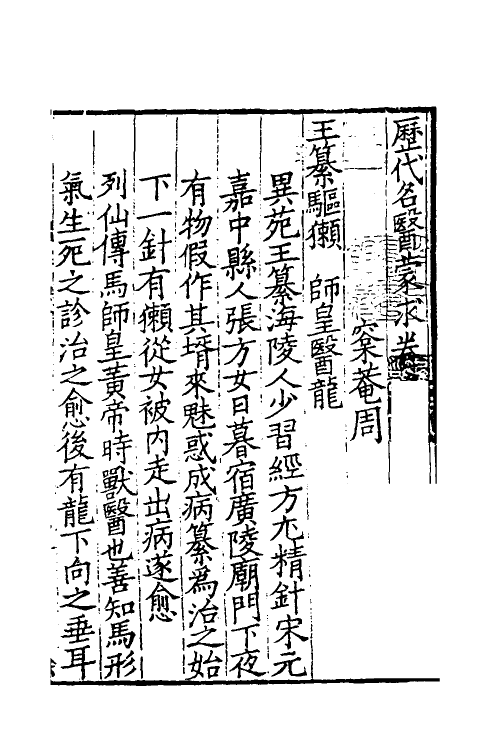 歷代名醫蒙求卷
寀菴周
王纂驅獺　師皇醫龍
異苑王纂海陵人少習經方尤精針宋元
嘉中縣人張方女日暮宿廣陵廟門下夜
有物假作其壻來魅惑成病纂爲治之始
下一針有獺從女被內走出病遂愈
列仙傳馬師皇黃帝時獸醫也善知馬形
氣生死之診治之愈後有龍下向之垂耳